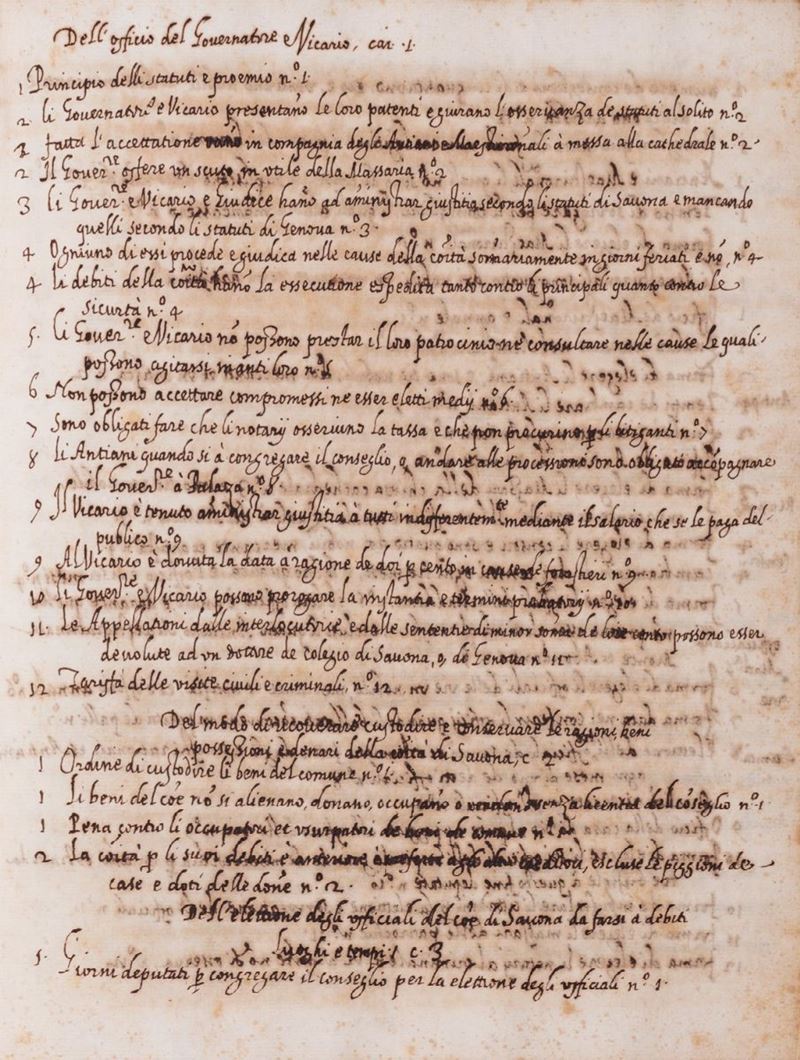 Dell'officio del Governatore e Vicario, car. 1.
1 Principio delli statuti e proemio n.º 1.
2. li Governat.ri e Vicario presentano le loro patenti e giurano l'osservanza de statuti al solito n.º 2
2 fatta l'accettatione in compagnia degl' à messa alla cathedrale n.º 2.
2 Il Gover.re offere un scuto in utile della Massaria n.º 2
3 li Gover.re e Vicario e Giudice hano ad aministrar giustitia secondo li statuti di Savona e mancando
quelli secondo li statuti di Genova n.º 3.
4 Ogniuno di essi procede e giudica nelle cause della coità somariamente in giorni feriati e nó, n.º 4
4 li debiti della coità hano la essecutione espedita tanto contro li principali quanto contro le
sicurtà n.º 4
5. li Gover.re e Vicario nó possono prestar il loro patrocinio ne consultare nelle cause le quali
possono agitarsi inanti loro n.º 5
6 Non possono accettare compromessi ne esser eletti medij n.º 6
7 Sono obligati fare che li notarij osservino la tassa e che non li litiganti n.º 7
8 li Antiani quando si à congregare il conseglio, o, andare alle processioni sono obligati acópagnare
il Gover.re à Palazo n.º 8
9 Il Vicario è tenuto aministrar giustitia à tutti indifferentem.te mediante il salario che se le paga del
publico n.º 9
9 Al Vicario è dovuta la data à ragione de doi p cento in cause de forastieri n.º 9
10 li Gover.re e Vicario possono prorogare la instantia e termini probatorij n.º 10
11. Le Appellationi dalle interlocutrice, e dalle sententie di minor soma de lire cento possono esser
devolute ad un dottore de colegio di Savona, o, de Genova n.º 11
12 Tariffa delle visite civili e criminali, n.º 12.
Del modo di recuperare custodire e conservare le ragioni, beni
possessioni e denari della città di Savona, c 2
1 Ordine di custodire li beni del comune n.º 1.
1 Li beni del cóe nó si alienano, donano, occupano ò vendano senza licentia del cóseglio n.º 1
1 Pena contro li occupatori et usurpatori de beni de comune n.º
2 La coità p li suoi debiti è anteriore escluse le piggioni de
case e doti delle done n.º 2.
Dell'elettione degli ufficiali del cóe di Savona da farsi à debiti
luoghi e tempi c. 3
1. Giorni deputati p congregare il conseglio per la elettione degli ufficiali n.º 1.